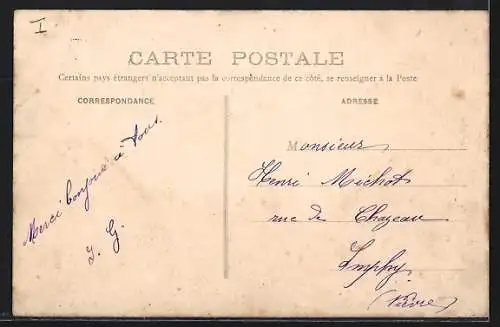 I
CARTE POSTALE
Certains pays étrangers n'acceptant pas la correspondance de ce côté, se renseigner à la Poste
CORRESPONDANCE
ADRESSE
Merci bonjour à tous
J. G.
Monsieur
Henri Michot
rue de Chazeau
Imphy
(Nièvre)